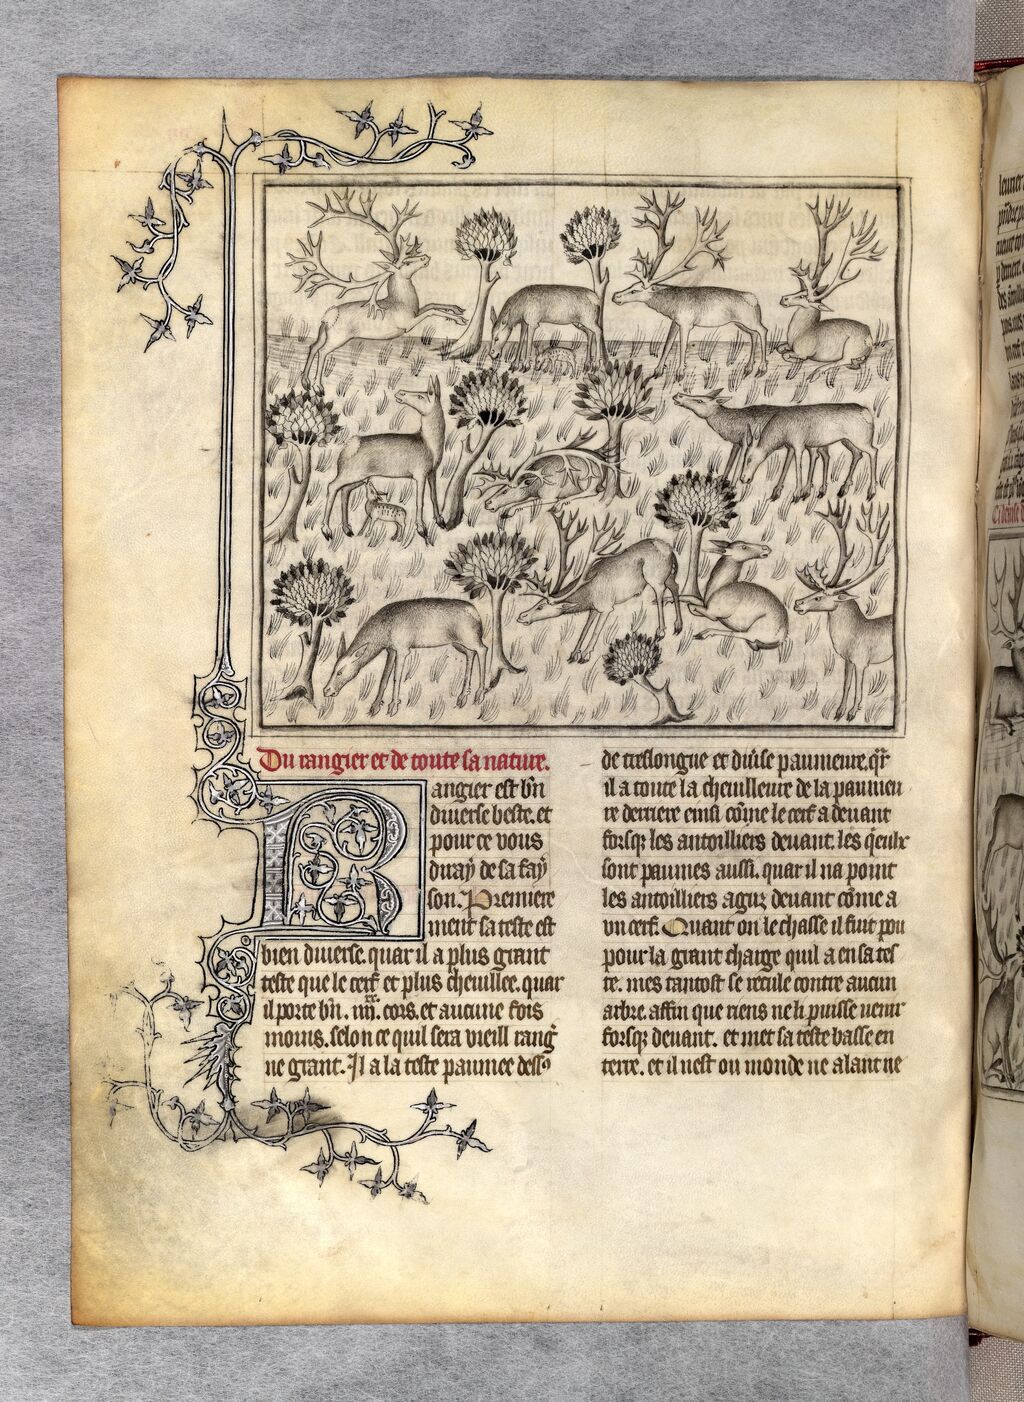 Du rangier et de toute sa nature.
Rangier est bñ
diuerse beste. et
pour ce vous
diray de sa fay
son. Premiere
ment sa teste est
bien diuerse. quar il a plus grant
teste que le cerf et plus cheuillee. quar
il porte bñ. iiii.xx. cors. et aucune fois
moins. selon ce quil sera vieill rang̃
ne grant. Il a la teste paumee dess⁹
de treslongue et diuise paumeure. qr̃
il a toute la cheuilleure de la paumeu
re derriere einsi cõme le cerf a deuant
forsqz les antoilliers deuant. les q̃eulx
sont paumes aussi. quar il na point
les antoilliers aguz deuant cõme a
vn cerf. Quant on le chasse il fuit pou
pour la grant charge quil a en sa tes
te. mes tantost se recule contre aucun
arbre. affin que riens ne li puisse venir
forsqz deuant. et met sa teste basse en
terre. et il nest ou monde ne alant ne